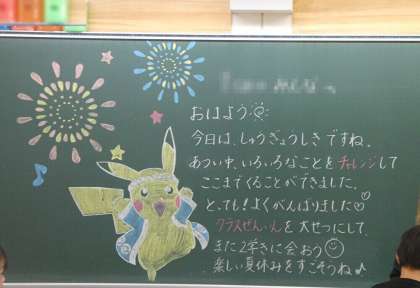 おはよう
今日は、しゅうぎょうしきですね。
あつい中、いろいろなことをチャレンジして
ここまでくることができました。
とっても!よくがんばりました♡
クラスぜんいんを大せつにして、
また2学きに会おう☺
楽しい夏休みをすごそうね♪